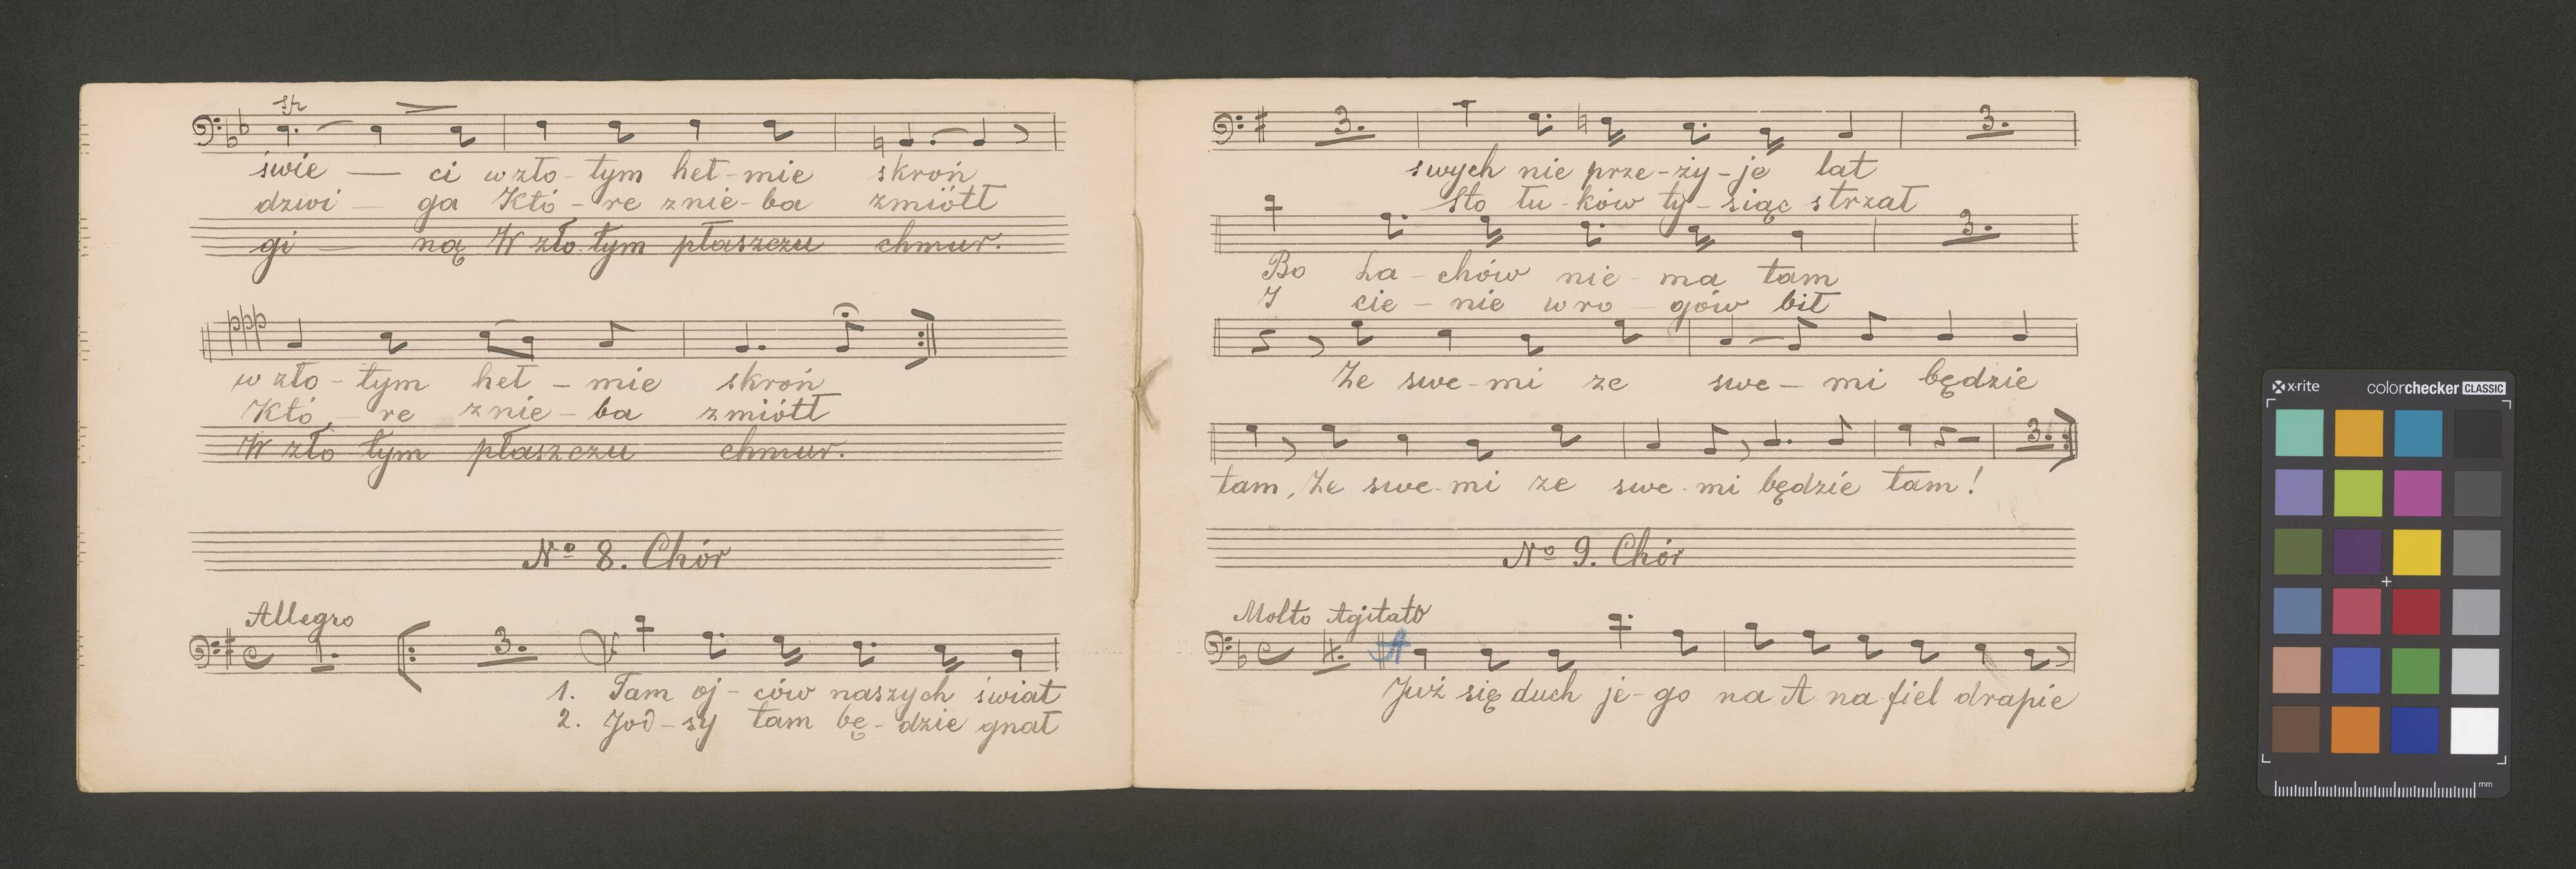 świe — ci w zło-tym heł-mie skroń
dzwi — ga Któ-re z nie-ba zmiótł
gi — ną W zło-tym płaszczu chmur.
ppp
w zło-tym heł-mie skroń
Któ-re z nie-ba zmiótł
W zło tym płaszczu chmur.
Nº 8. Chór
Allegro
1. 3.
1. Tam oj-ców naszych świat
2. Jod-sy tam bę-dzie gnał
3. 3.
swych nie prze-ży-je lat
Sto łu-ków ty-siąc strzał
3.
Bo La-chów nie-ma tam
I cie-nie wro-gów bił
Ze swe-mi ze swe-mi będzie
3.
tam, Ze swe-mi ze swe-mi będzie tam!
Nº 9. Chór
Molto Agitato
A
Już się duch je-go na A na-fiel drapie
x·rite colorchecker CLASSIC
mm